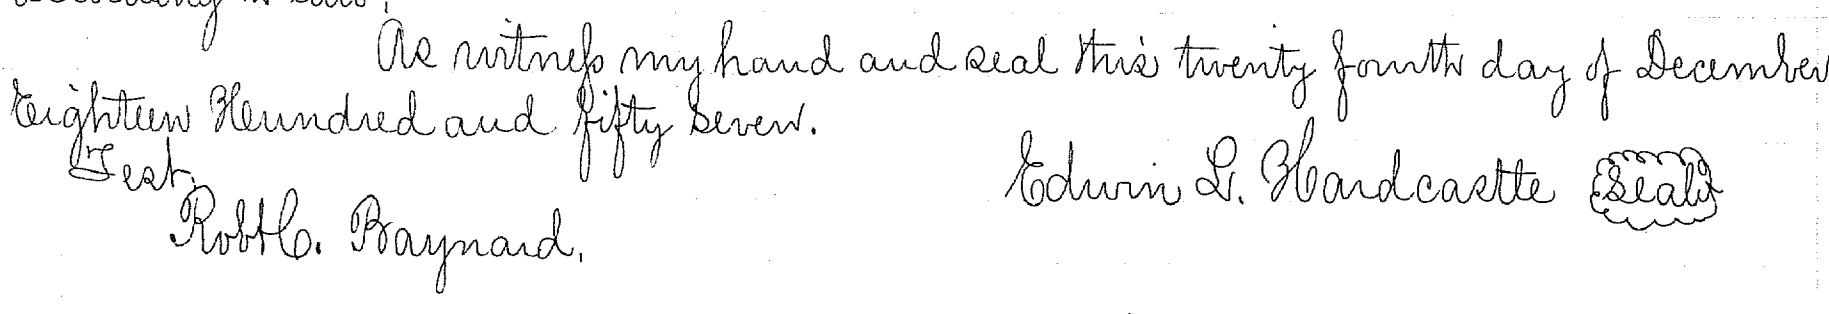 according to law.
As witness my hand and seal this twenty fourth day of December
Eighteen Hundred and fifty seven.
Test. Edwin L. Hardcastle Seal
Robt C. Baynard.